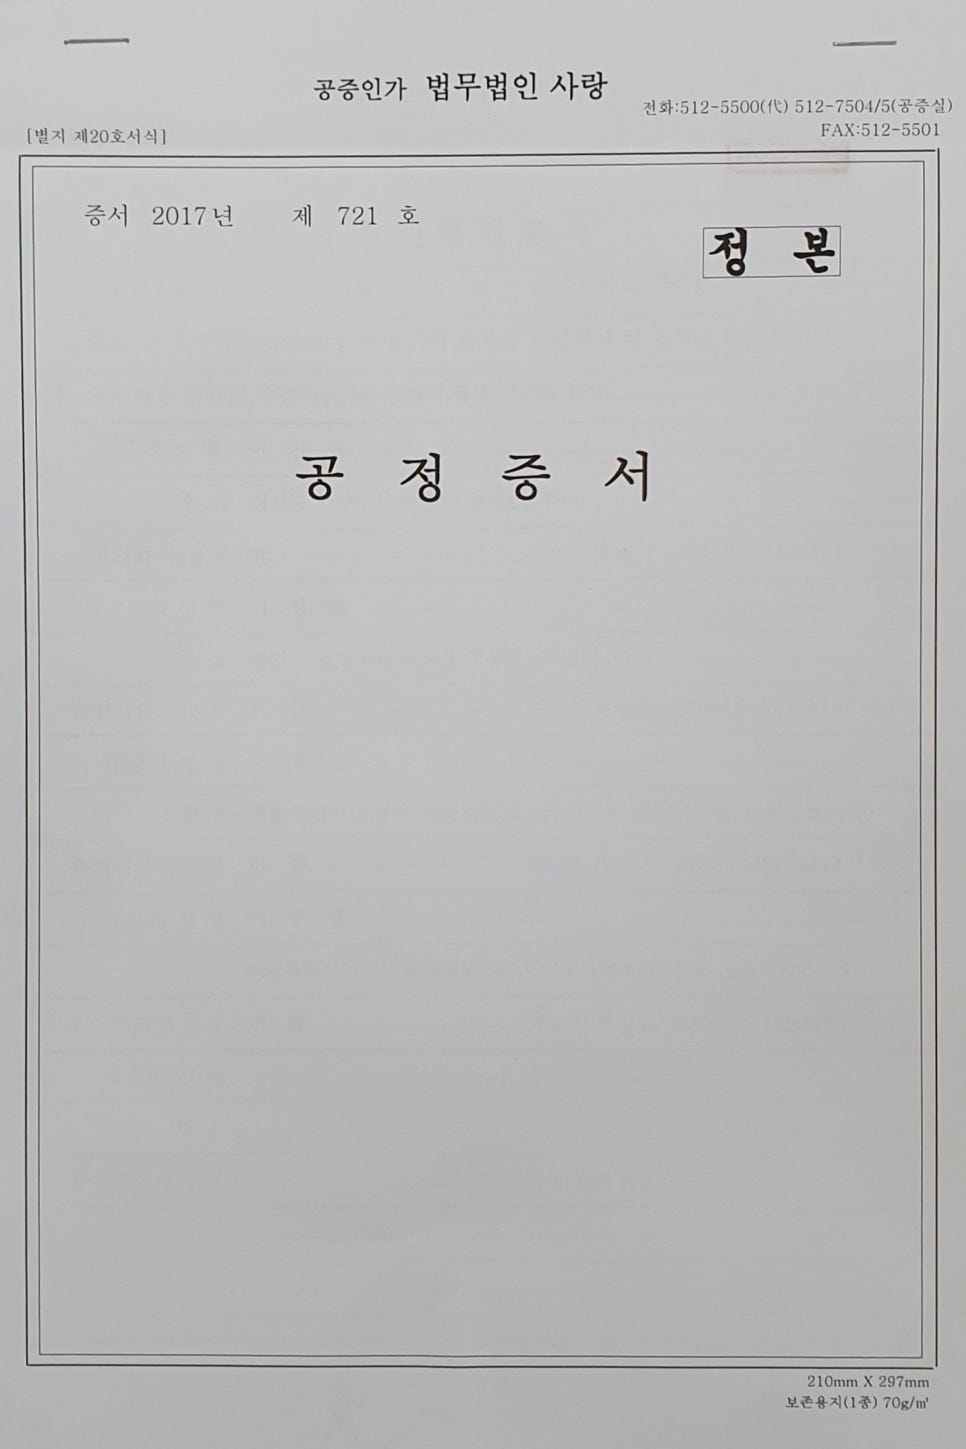 공증인가 법무법인 사랑
전화:512-5500(代) 512-7504/5(공증실)
FAX:512-5501
[별지 제20호서식]
증서 2017년 제 721 호
정 본
공 정 증 서
210mm X 297mm
보존용지(1종) 70g/㎡